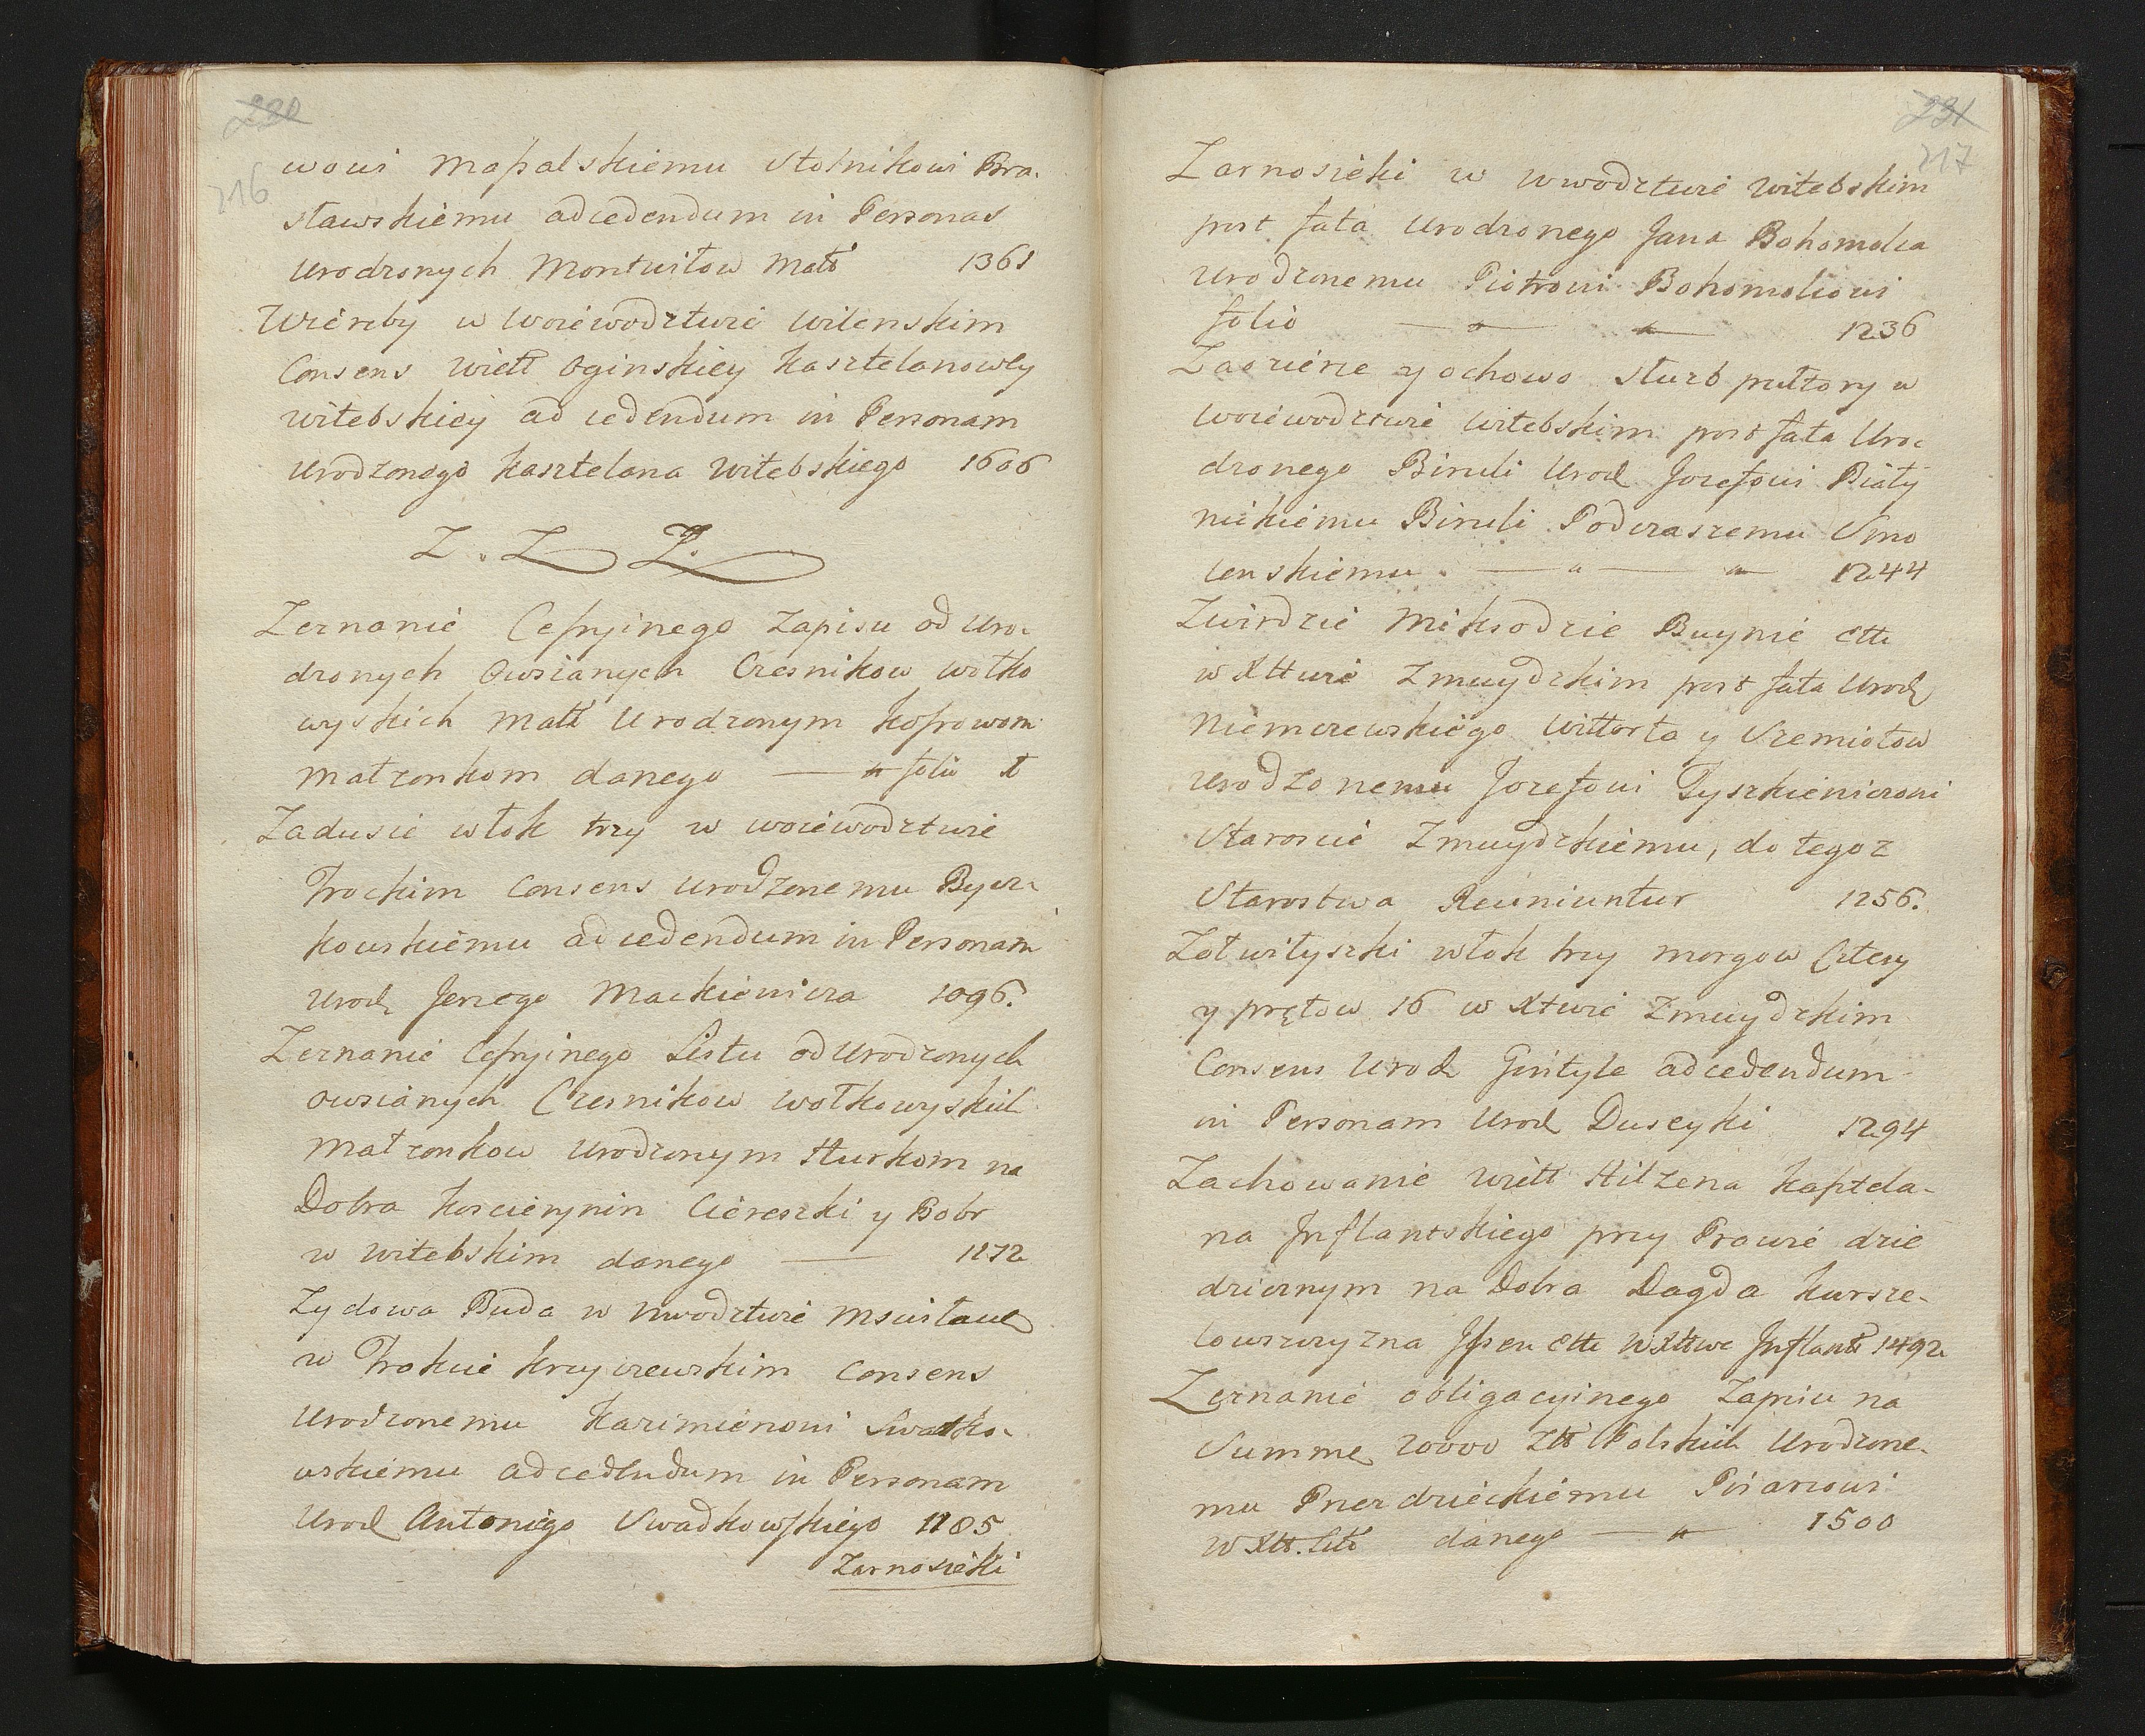 220
216
wowi Mapalskiemu Stolnikowi Bra-
sławskiemu ad cedendum in Personas
Urodzonych Montwiłow Małż 1361
Wierzby w Woiewodztwie Wilenskim
Consens Wiell Oginskiey Kasztelanowey
Witebskiey ad cedendum in Personam
Urodzonego Kasztelana Witebskiego 1606
Z. Z Z.
Zeznanie Cessyinego Zapisu od Uro-
dzonych Owsianych Czesnikow Wołko
wyskich Małż Urodzonym
Małzonkom danego — folio 1
Zadusie włok trzy w woiewodztwie
Trockim Consens Urodzonemu Bycz-
kowskiemu ad cedendum in Personam
Urodz Jerzego Mackiewicza 1096.
Zeznanie Cessyinego Listu od Urodzonych
Owsianych Czesnikow Wołkowyskich
Małzonkow Urodzonym Hurkom na
Dobra Koscierynin Ciereszki y Bobr
w Witebskim danego — 1172
Zydowa Buda w Wwodztwie Mscisław
w Trakcie Krzyczewskim Consens
Urodzonemu Kazimierzowi Swadko-
wskiemu ad cedendum in Personam
Urod Antoniego Swadkowskiego 1185
Zarnosieki
231
217
Zarnosieki w Wwodztwie Witebskim
post fata Urodzonego Jana Bohomolca
Urodzonemu Piotrowi Bohomolcowi
folio — " — " — 1236
Zaozierze y Ochowo Służb pułtory w
Woiewodztwie Witebskim post fata Uro-
dzonego Biruli Urod Jozefowi Biały
nickiemu Biruli Podczaszemu Smo
lenskiemu — " — " — 1244
Zwirdzie Miksodzie Buynie etc
w Xttwie Zmuydzkim post fata Urodz
Niemczewskiego Wittorta y Szemiotow
Urodzonemu Jozefowi Tyszkiewiczowi
Staroscie Zmuydzkiemu, do tegoz
Starostwa Reuniuntur 1256.
Zotwityszki włok trzy morgow Cztery
y prętow 16 w Xtwie Zmuydzkim
Consens Urodz Gintyle ad cedendum
in Personam Urod Duseyki 1294
Zachowanie Wiell Hilzena Kasztela-
na Inflantskiego przy Prawie dzie
dzicznym na Dobra Dagda Kursze-
lowszczyzna etc w Xttwe Inflants 1492
Zeznanie obligacyinego Zapisu na
Summe 20000 Złł Polskich Urodzone-
mu Przezdzieckiemu Pisarzowi
W Xtt. Litt danego — " — 1500